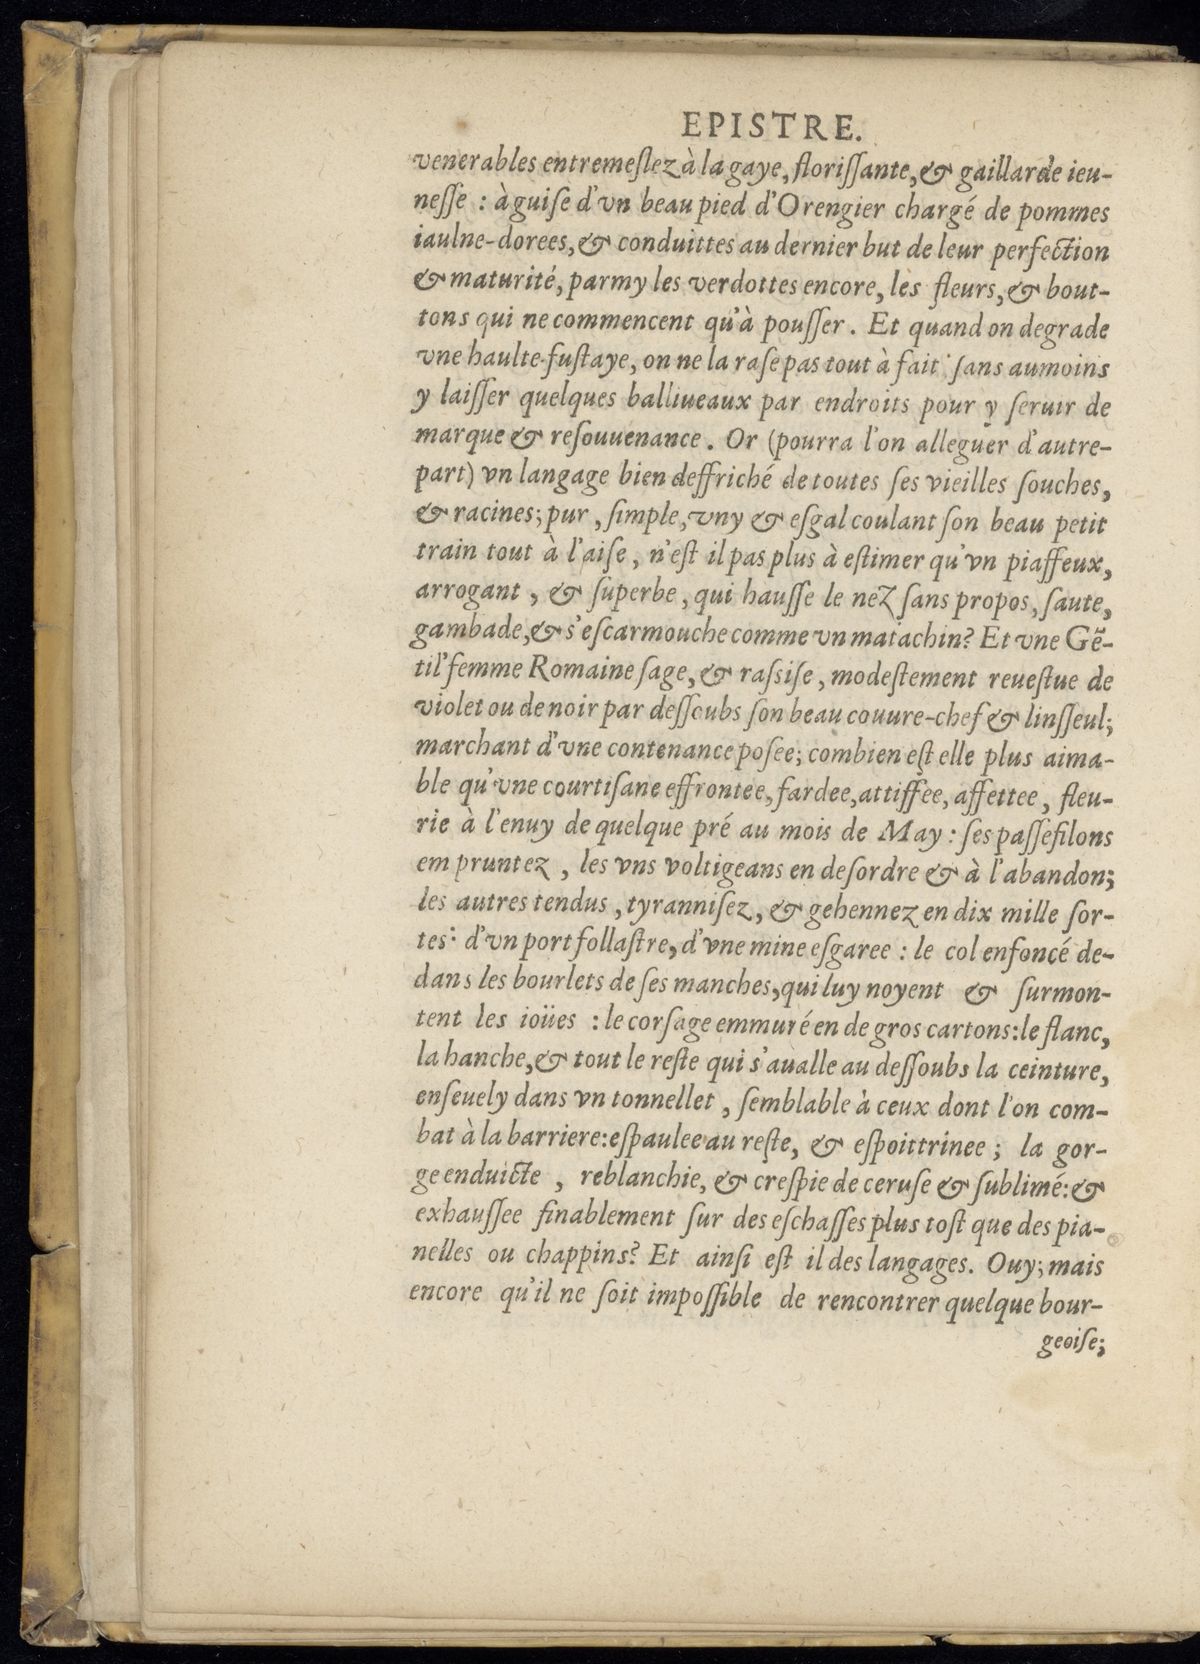 EPISTRE.
venerables entremeſlez à la gaye, floriſſante, & gaillarde ieu-
neſſe : à guiſe d'vn beau pied d'Orengier chargé de pommes
iaulne-dorees, & conduittes au dernier but de leur perfection
& maturité, parmy les verdottes encore, les fleurs, & bout-
tons qui ne commencent qu'à pouſſer. Et quand on degrade
vne haulte-fuſtaye, on ne la raſe pas tout à fait ſans aumoins
y laiſſer quelques balliueaux par endroits pour y ſeruir de
marque & reſouuenance. Or (pourra l'on alleguer d'autre-
part) vn langage bien deffriché de toutes ſes vieilles ſouches,
& racines; pur, ſimple, vny & eſgal coulant ſon beau petit
train tout à l'aiſe, n'eſt il pas plus à eſtimer qu'vn piaffeux,
arrogant, & ſuperbe, qui hauſſe le nez ſans propos, ſaute,
gambade, & s'eſcarmouche comme vn matachin? Et vne Gẽ-
til'femme Romaine ſage, & raſsiſe, modeſtement reueſtue de
violet ou de noir par deſſoubs ſon beau couure-chef & linſſeul;
marchant d'vne contenance poſee; combien eſt elle plus aima-
ble qu'vne courtiſane effrontee, fardee, attiffee, affettee, fleu-
rie à l'enuy de quelque pré au mois de May : ſes paſſefilons
empruntez, les vns voltigeans en deſordre & à l'abandon;
les autres tendus, tyranniſez, & gehennez en dix mille ſor-
tes: d'vn port follaſtre, d'vne mine eſgaree : le col enfoncé de-
dans les bourlets de ſes manches, qui luy noyent & ſurmon-
tent les ioües : le corſage emmuré en de gros cartons: le flanc,
la hanche, & tout le reſte qui s'aualle au deſſoubs la ceinture,
enſeuely dans vn tonnellet, ſemblable à ceux dont l'on com-
bat à la barriere: eſpaulee au reſte, & eſpoittrinee ; la gor-
ge enduicte, reblanchie, & creſpie de ceruſe & ſublimé: &
exhauſſee finablement ſur des eſchaſſes plus toſt que des pia-
nelles ou chappins? Et ainſi eſt il des langages. Ouy; mais
encore qu'il ne ſoit impoſſible de rencontrer quelque bour-
geoiſe;